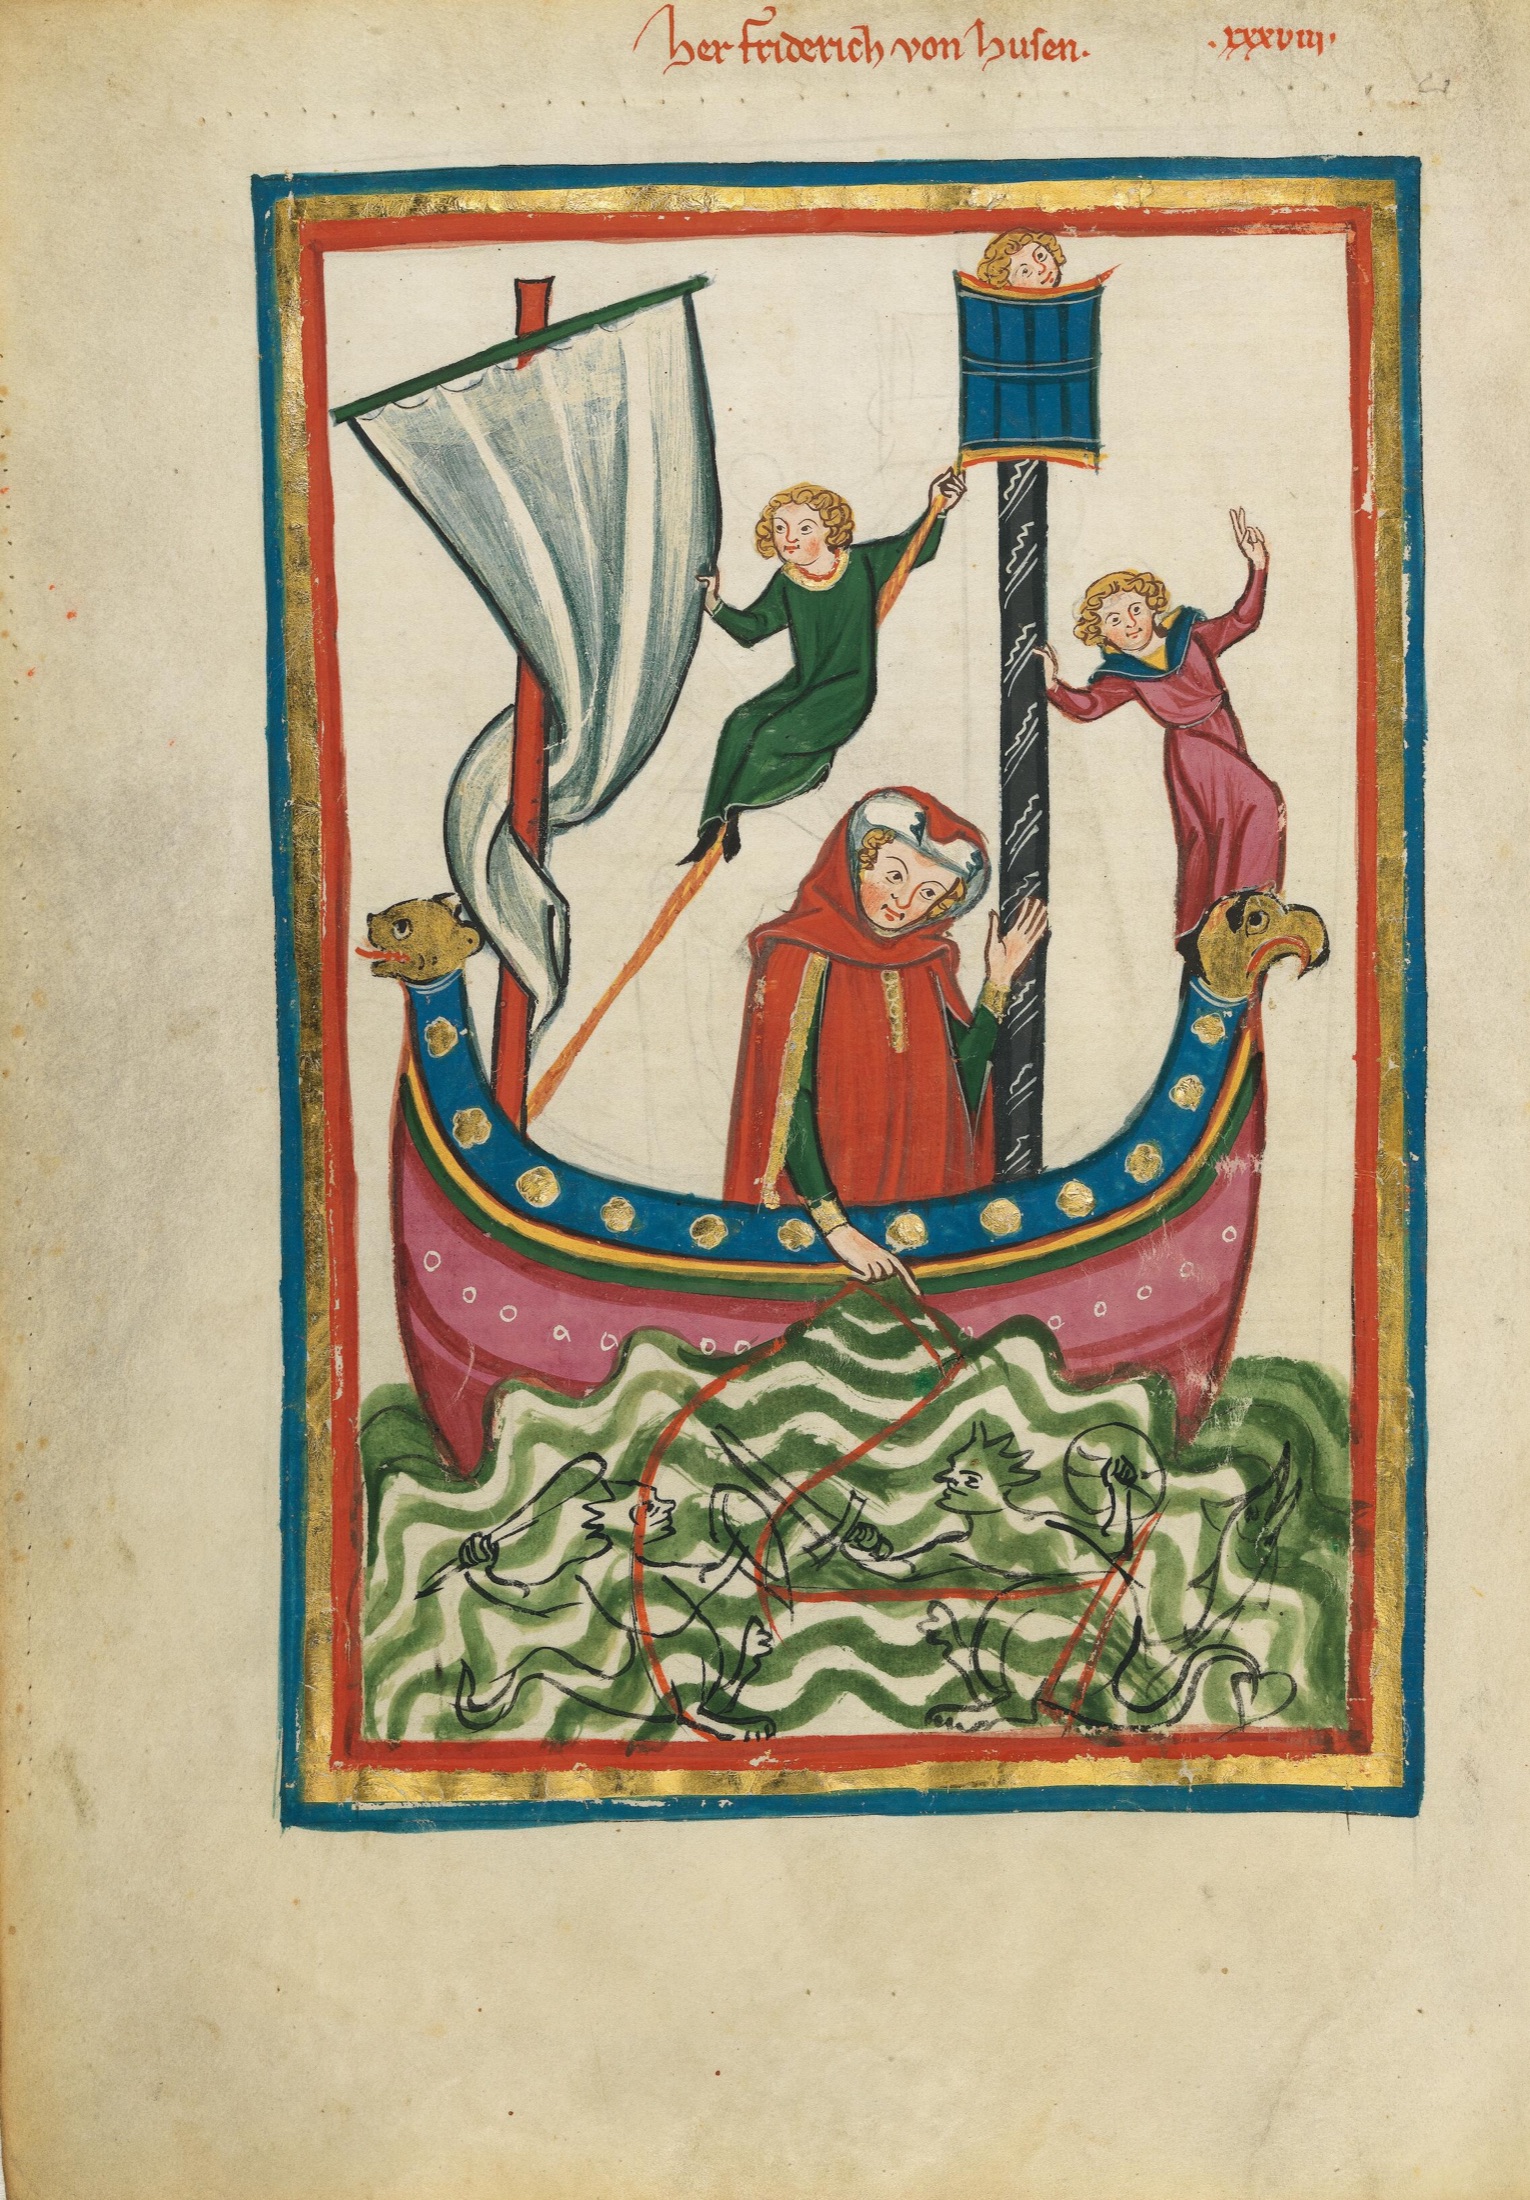 her Friderich von husen. .xxxviii.